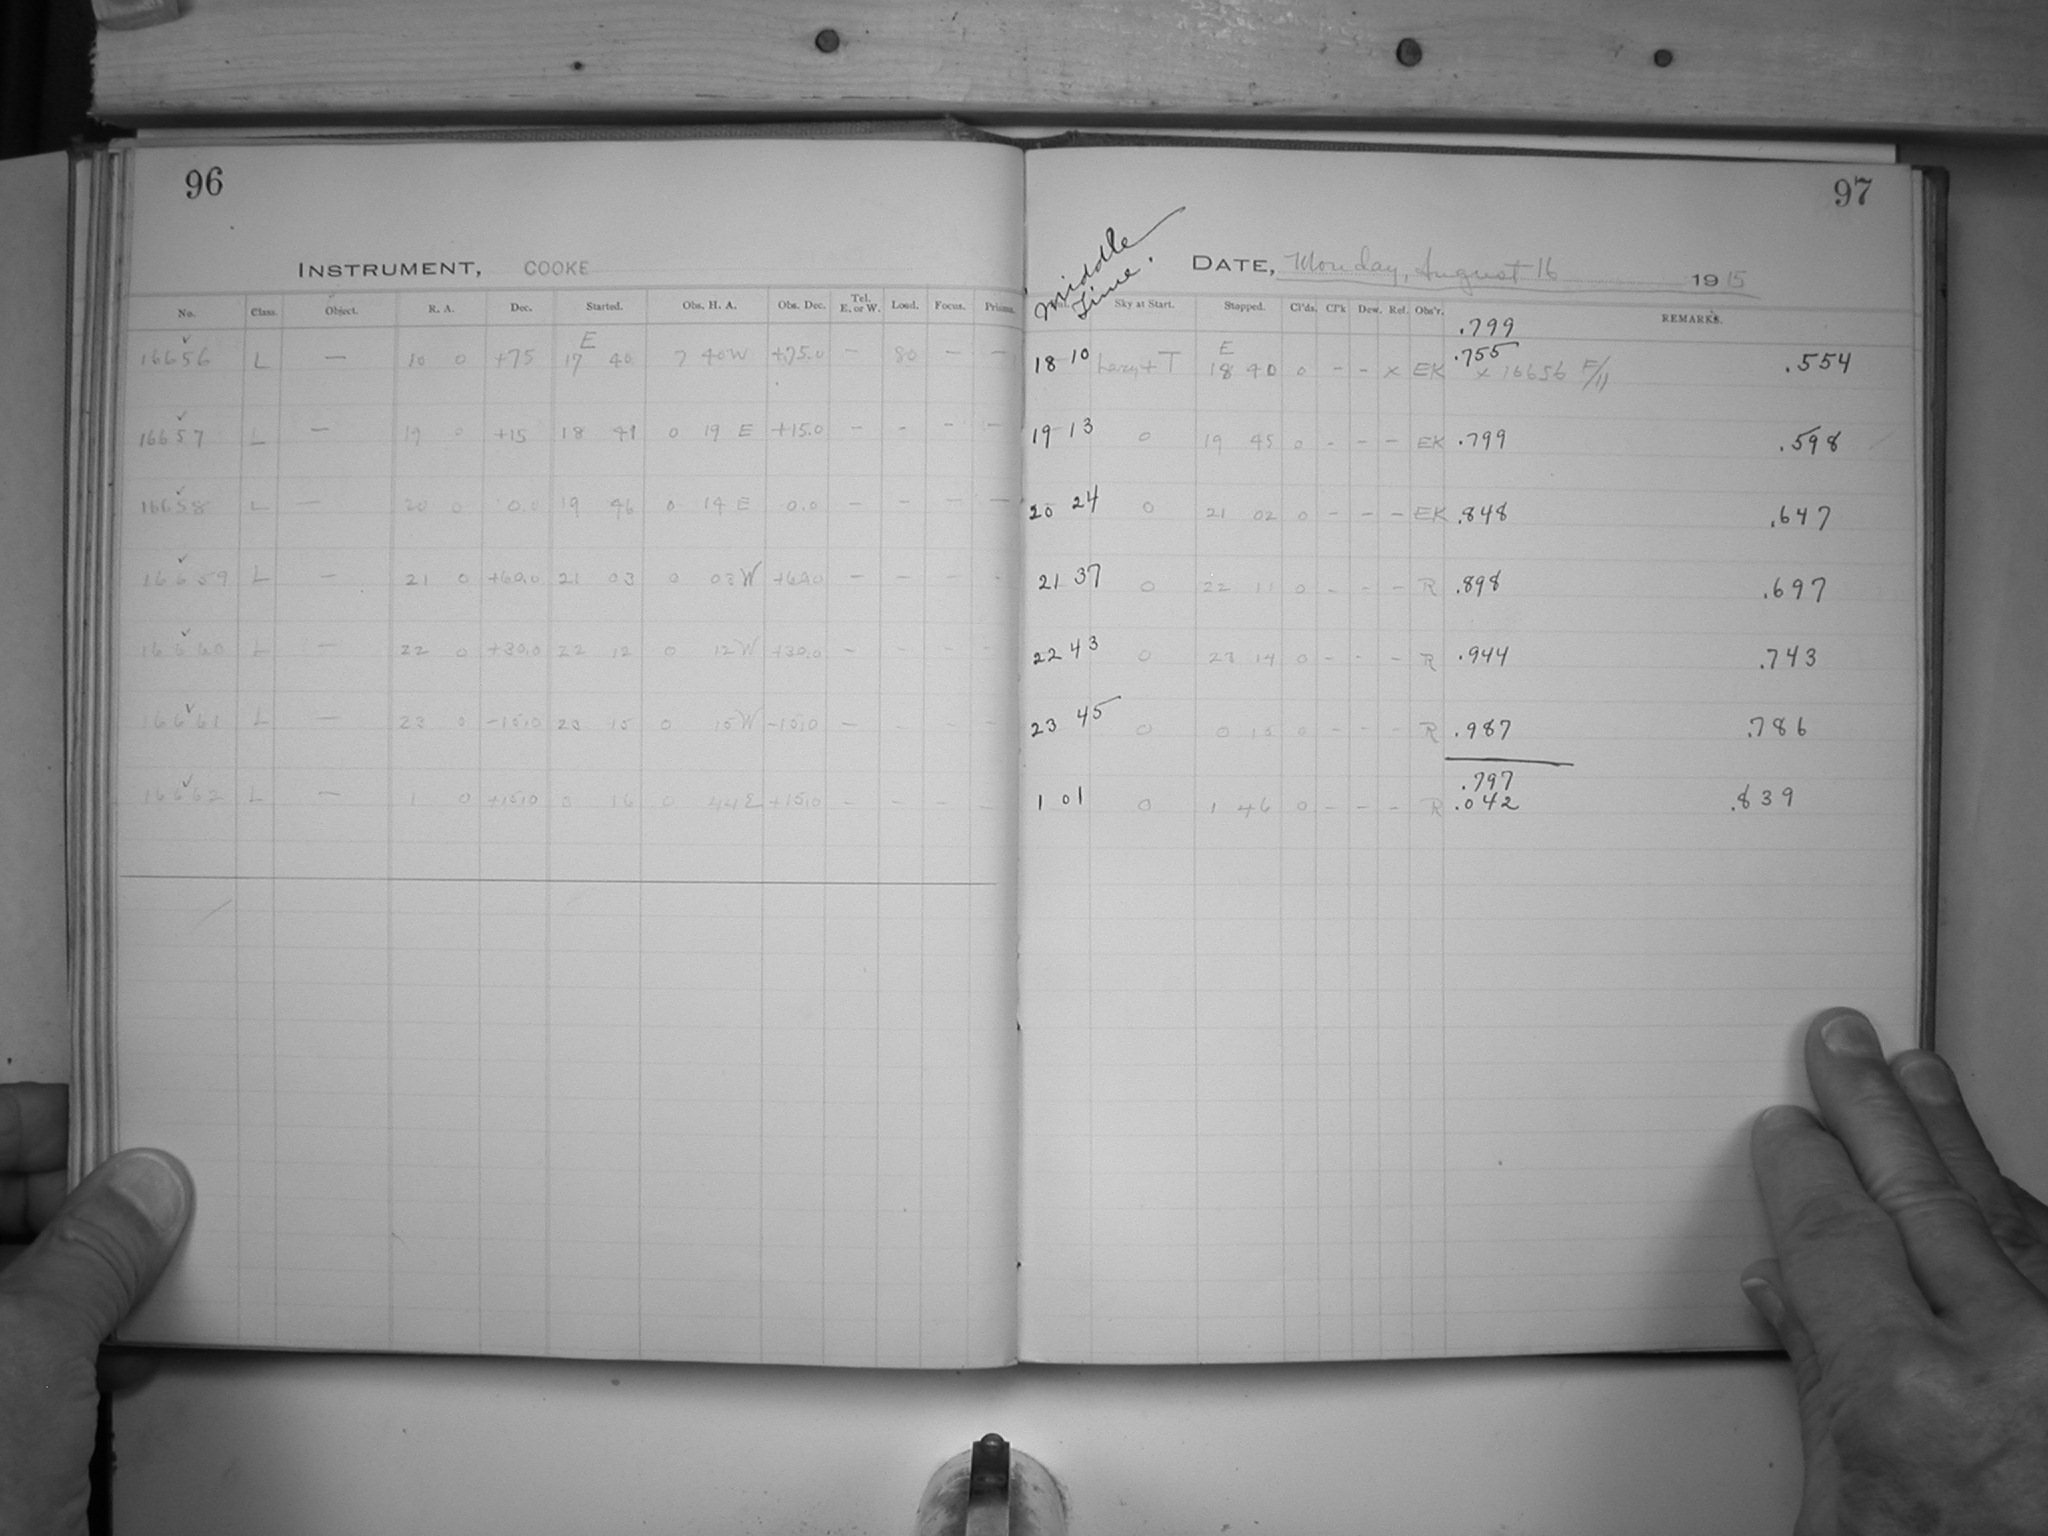 96
INSTRUMENT, COOKE
No. Class. Object. R. A. Dec. Started. Obs. H. A. Obs. Dec. Tel. E. or W. Load. Focus. Prisms.
E
16656 L — 10 0 +75 17 40 7 40W +75.0 — 80 — —
16657 L — 19 0 +15 18 41 0 19 E +15.0 — - — —
16658 L — 20 0 0.0 19 46 0 14 E 0.0 — - — —
16659 L — 21 0 +60.0 21 03 0 03W +60.0 — - - -
16660 L — 22 0 +30.0 22 12 0 12W +30.0 — - - -
16661 L — 23 0 -15.0 23 15 0 15W -15.0 — - - -
16662 L — 1 0 +15.0 0 16 0 44E +15.0 — - - -
97
Middle
Time.
DATE, Monday, August 16 1915
Sky at Start. Stopped. Cl'ds. Cl'k Dew. Ref. Obs'r. REMARKS.
.799
E .755
18 10 hazy + T 18 40 0 - - x EK x 16656 F/11 .554
19 13 0 19 45 0 - - - EK .799 .598
20 24 0 21 02 0 - - - EK .848 .647
21 37 0 22 11 0 - - - R .898 .697
22 43 0 23 14 0 - - - R .944 .743
23 45 0 0 15 0 - - - R .987 .786
.797
1 01 0 1 46 0 - - - R .042 .839